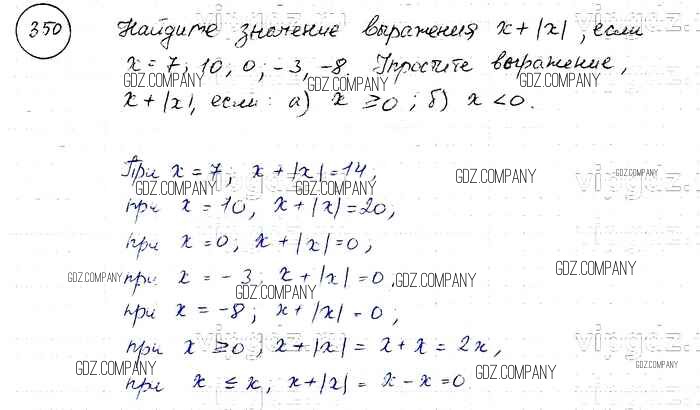 350 Найдите значение выражения x + |x|, если
x = 7, 10, 0, -3, -8. Упростите выражение,
GDZ.COMPANY GDZ.COMPANY
x + |x|, если: а) x ≥ 0; б) x < 0.
GDZ.COMPANY GDZ.COMPANY
При x = 7; x + |x| = 14,
GDZ.COMPANY GDZ.COMPANY GDZ.COMPANY
при x = 10, x + |x| = 20,
при x = 0; x + |x| = 0,
GDZ.COMPANY
GDZ.COMPANY при x = -3; x + |x| = 0, GDZ.COMPANY
GDZ.COMPANY
при x = -8; x + |x| = 0;
при x ≥ 0; x + |x| = x + x = 2x,
GDZ.COMPANY GDZ.COMPANY
при x ≤ x; x + |x| = x - x = 0.
GDZ.COMPANY
vipgdz.